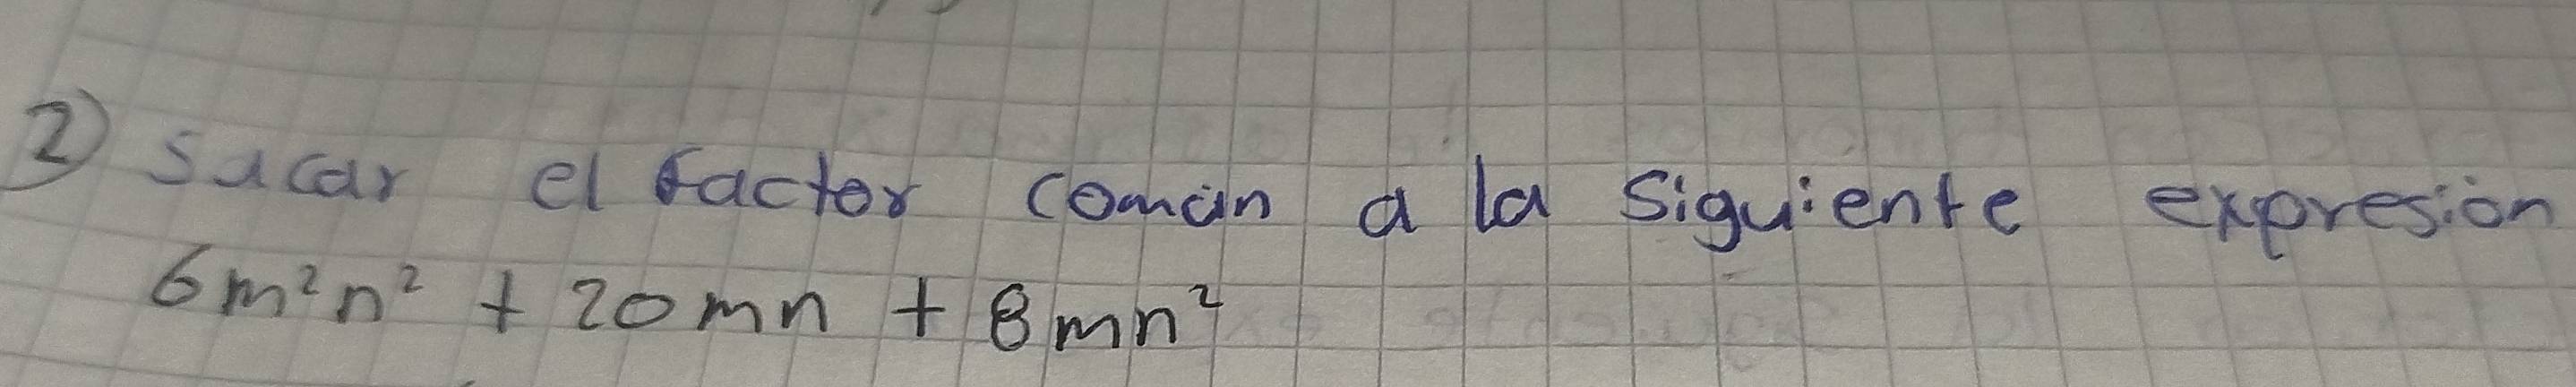 2) Sacar el factor común a la siguiente expresión
6m²n² + 20mn + 8mn²